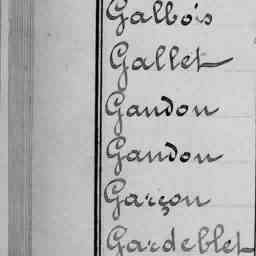 Galbois
Gallet
Gandon
Gandon
Garçon
Gardeblet